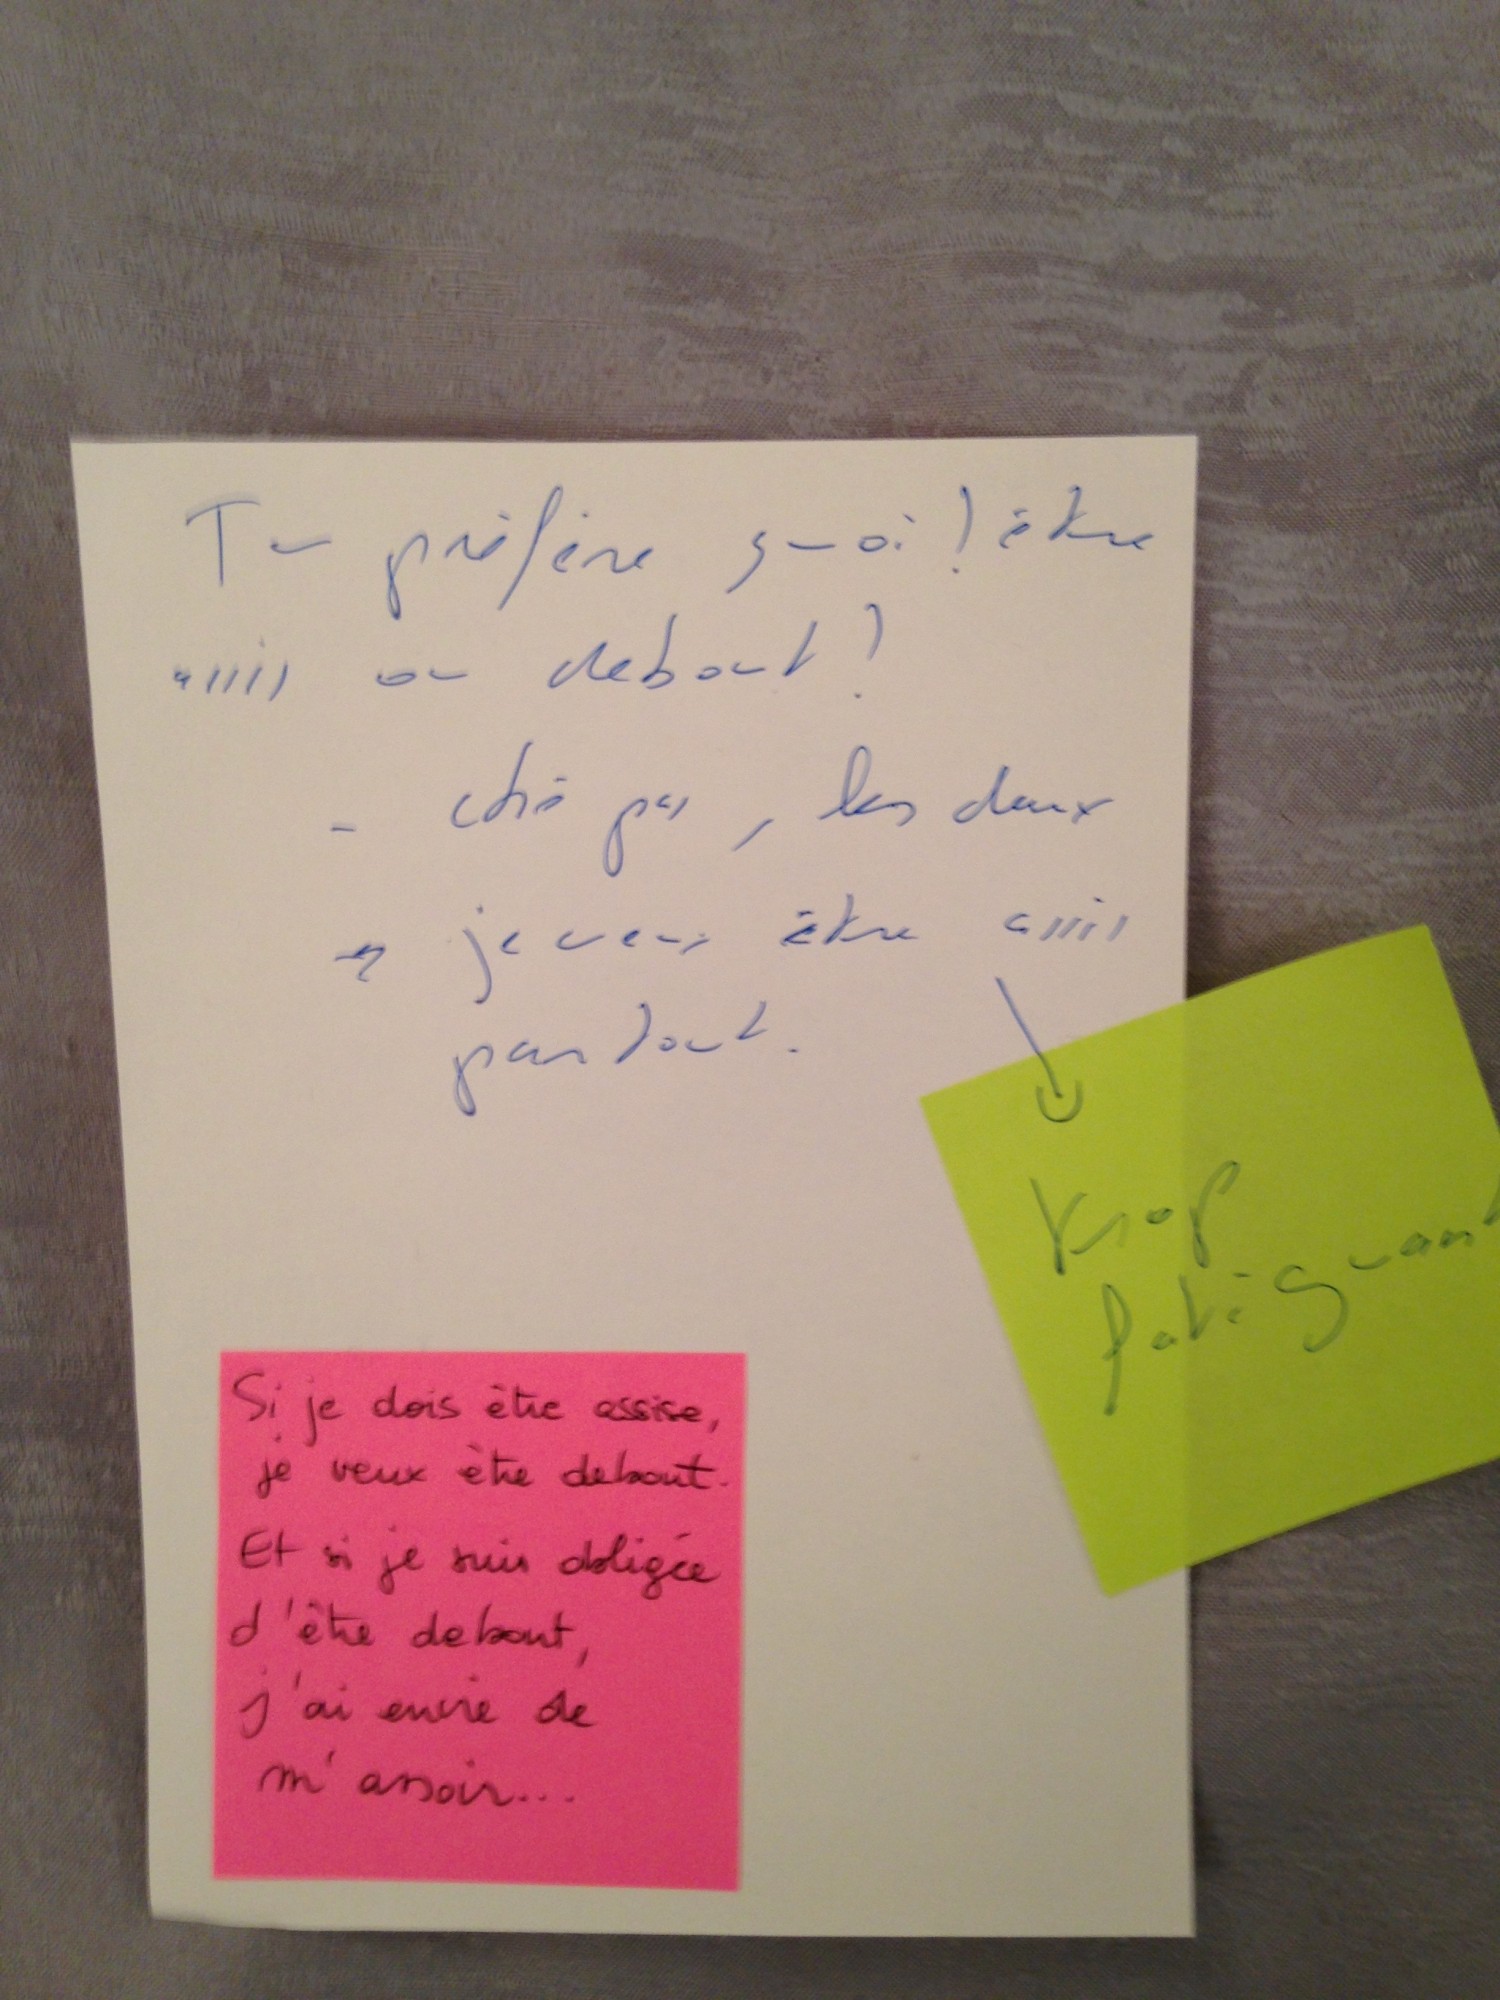 Tu préfère quoi ? être
assis ou debout ?
- chépas, les deux
→ je veux être assis
partout.
trop
fatiguant
Si je dois être assise,
je veux être debout.
Et si je suis obligée
d'être debout,
j'ai envie de
m'assoir...